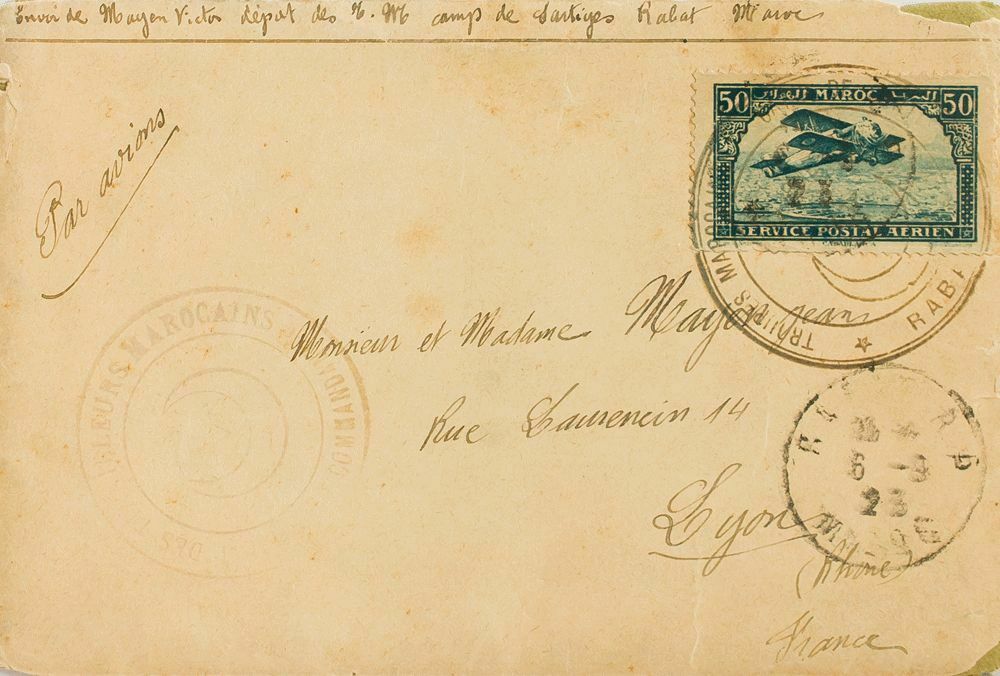 Envoi de Mayen Victor dépot des T. M camp de Sartiges Rabat Maroc
Par avions
50 MAROC البريد الجوي 50
SERVICE POSTAL AÉRIEN
23
TROUPES MAROCAINES
RABAT
TIRAILLEURS MAROCAINS
COMMANDANT
DES
Monsieur et Madame Mayen Jean
Rue Laurencin 14
Lyon
(Rhône)
France
6 - 9
23
MAROC